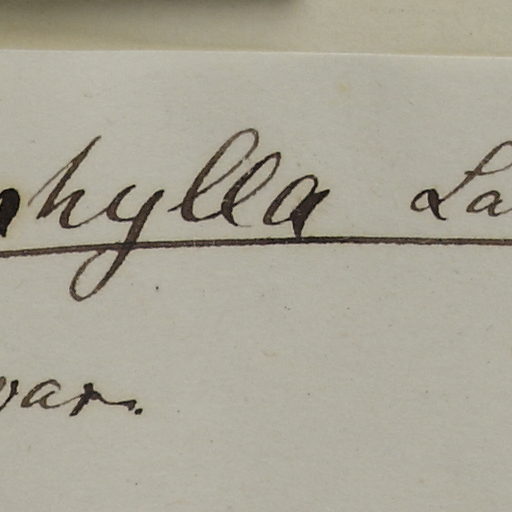 phylla La
var.